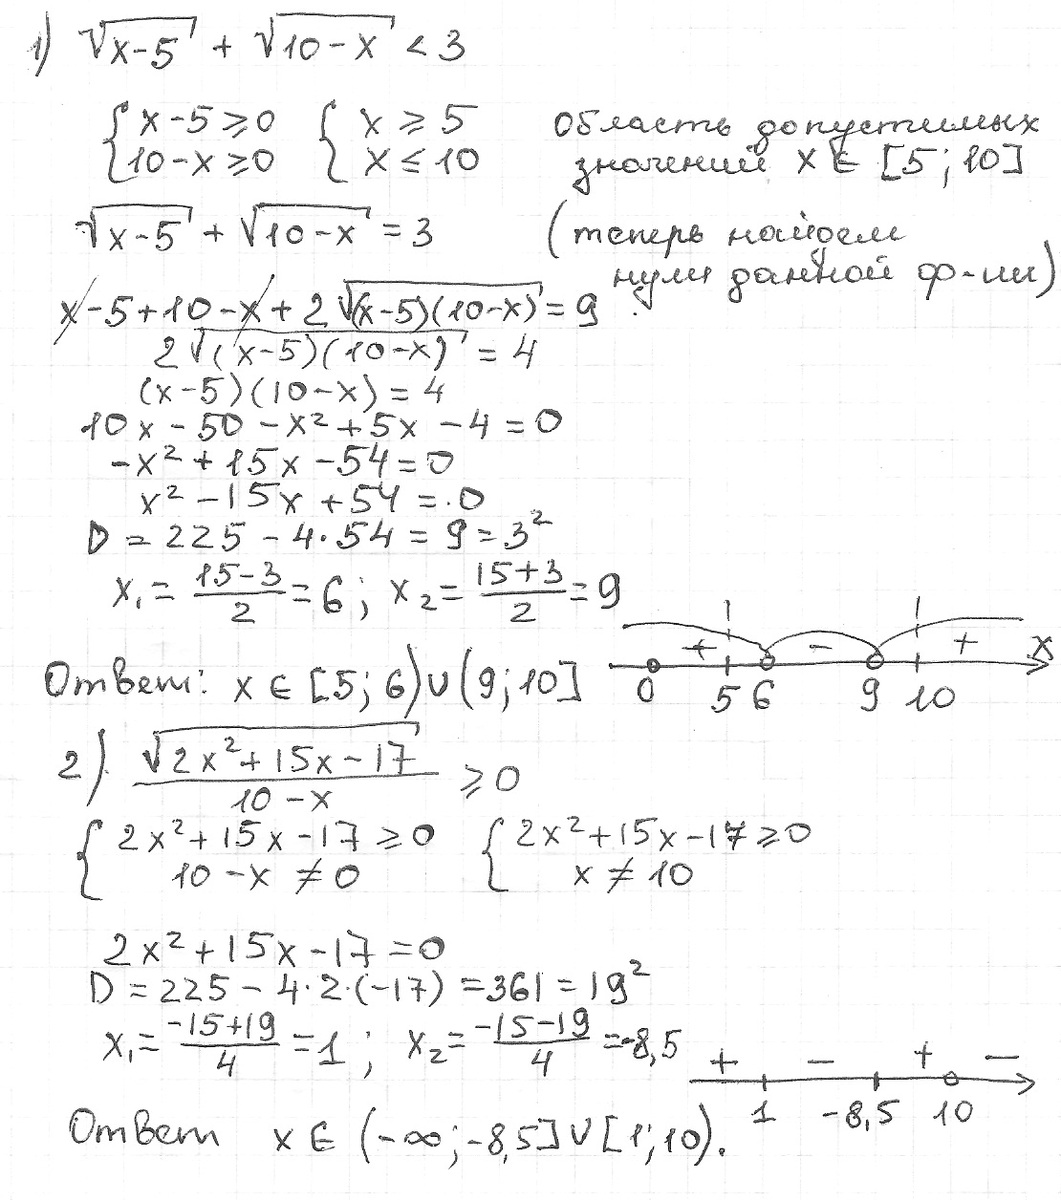 1) √(x-5) + √(10-x) < 3
{ x-5 ≥ 0 { x ≥ 5 Область допустимых
{ 10-x ≥ 0 { x ≤ 10 значений x ∈ [5; 10]
√(x-5) + √(10-x) = 3 (теперь найдем
нули данной ф-ии)
x-5+10-x+2√((x-5)(10-x)) = 9
2√((x-5)(10-x)) = 4
(x-5)(10-x) = 4
10x - 50 - x² + 5x - 4 = 0
-x² + 15x - 54 = 0
x² - 15x + 54 = 0
D = 225 - 4·54 = 9 = 3²
x₁ = (15-3)/2 = 6; x₂ = (15+3)/2 = 9
+ - + x
0 5 6 9 10
Ответ: x ∈ [5; 6) ∪ (9; 10]
2) √(2x²+15x-17)/(10-x) ≥ 0
{ 2x²+15x-17 ≥ 0 { 2x²+15x-17 ≥ 0
{ 10-x ≠ 0 { x ≠ 10
2x²+15x-17 = 0
D = 225 - 4·2·(-17) = 361 = 19²
x₁ = (-15+19)/4 = 1; x₂ = (-15-19)/4 = -8,5
+ - + -
1 -8,5 10
Ответ x ∈ (-∞; -8,5] ∪ [1; 10).